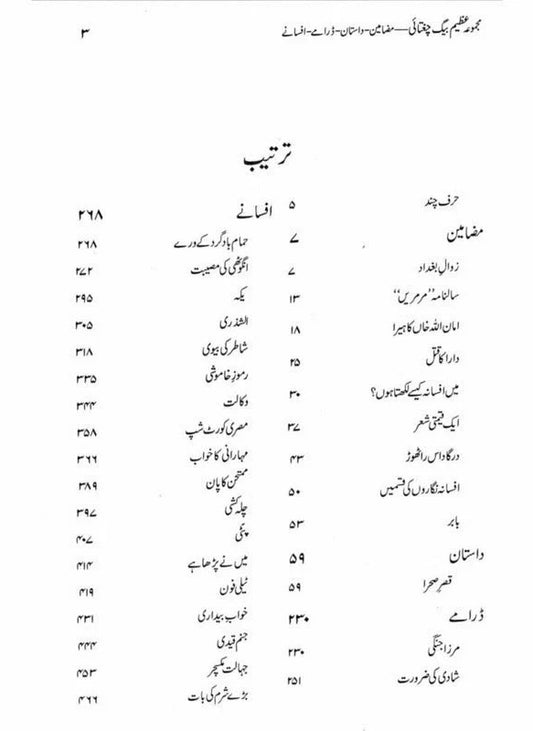 مجموعہ عظیم بیگ چغتائی — مضامین - داستان - ڈرامے - افسانے ۳
ترتیب
حرف چند ۵
مضامین ۷
زوالِ بغداد ۷
سالنامہ ”مرمریں“ ۱۳
امان اللہ خاں کا ہیرا ۱۸
دارا کا قتل ۲۵
میں افسانہ کیسے لکھتا ہوں؟ ۳۰
ایک قیمتی شعر ۳۷
درگا داس راٹھوڑ ۴۳
افسانہ نگاروں کی قسمیں ۵۰
بابر ۵۳
داستان ۵۹
قصرِ صحرا ۵۹
ڈرامے ۲۳۰
مرزا جنگی ۲۳۰
شادی کی ضرورت ۲۵۱
افسانے ۲۶۸
حمام بادگرد کے ورے ۲۶۸
انگوٹھی کی مصیبت ۲۷۲
یکہ ۲۹۵
الشذری ۳۰۵
شاطر کی بیوی ۳۱۸
رموزِ خاموشی ۳۳۵
وکالت ۳۴۴
مصری کورٹ شپ ۳۵۸
مہارانی کا خواب ۳۶۶
ممتحن کا پان ۳۸۹
چلہ کشی ۳۹۷
پٹی ۴۰۷
میں نے پڑھا ہے ۴۱۴
ٹیلی فون ۴۱۹
خواب بیداری ۴۳۱
جنم قیدی ۴۴۴
جہالت مکسچر ۴۵۳
بڑے شرم کی بات ۴۶۶